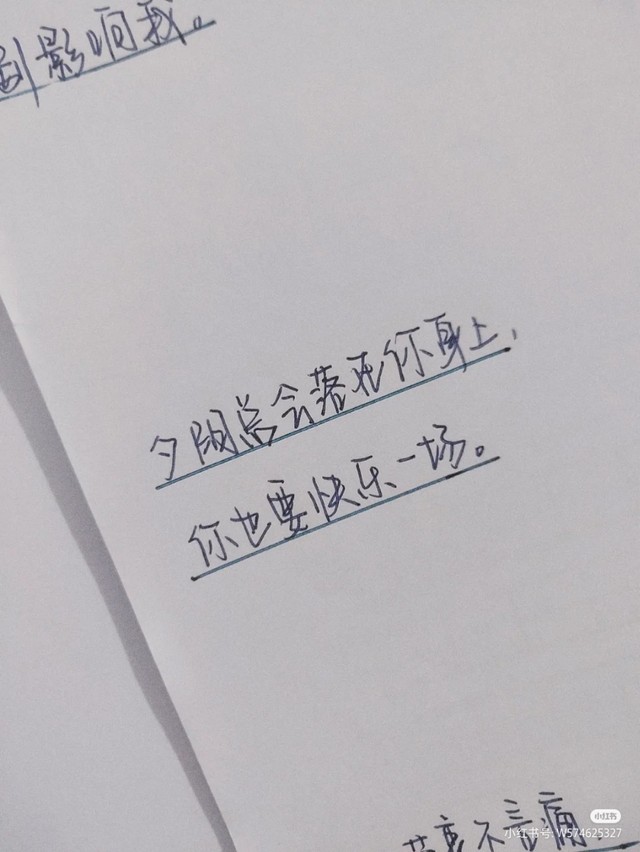 影响我。
夕阳总会落在你身上，
你也要快乐一场。
不言痛
小红书
小红书号: W574625327